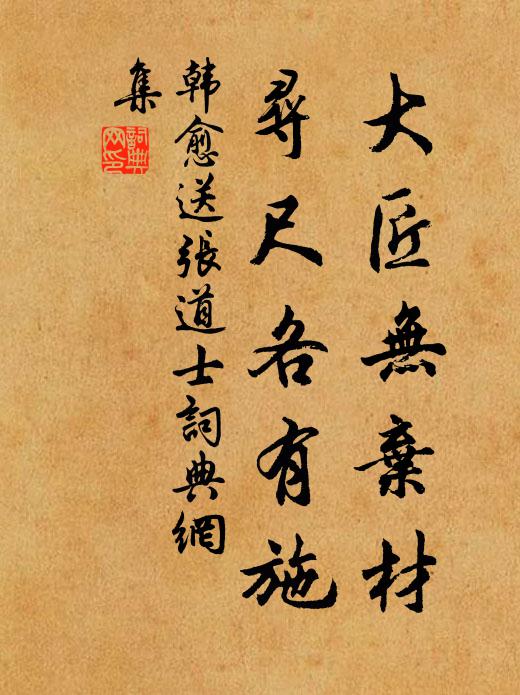 大匠無棄材
尋尺各有施
韩愈送張道士詞典網
集
詞典
网印